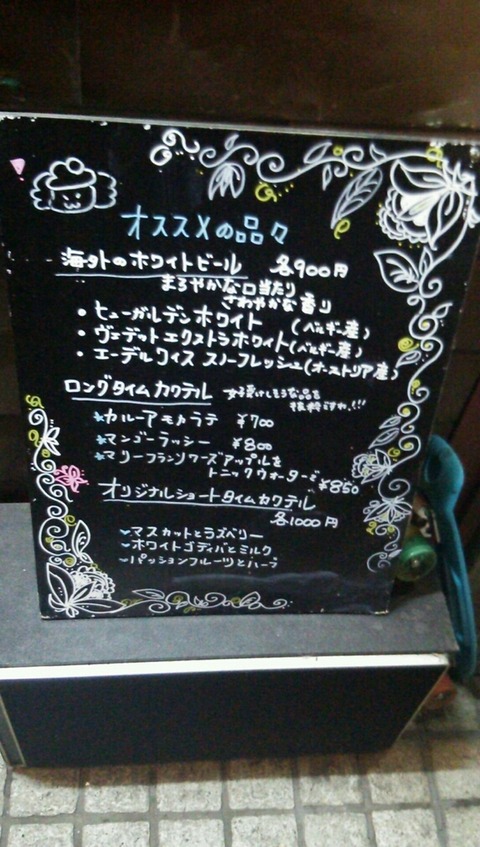 オススメの品々
海外のホワイトビール 各900円
まろやかな口当たり
さわやかな香り
・ヒューガルデンホワイト (ベルギー産)
・ヴェデットエクストラホワイト(ベルギー産)
・エーデルワイス スノーフレッシュ(オーストリア産)
ロングタイムカクテル 女子受けしそうな品を
*カルーアモカラテ ¥700
*マンゴーラッシー ¥800
*マリーフランソワーズアップルを
トニックウォーターで ¥850
オリジナルショートタイムカクテル
各1000円
マスカットとラズベリー
ホワイトゴディバとミルク
パッションフルーツとハーブ